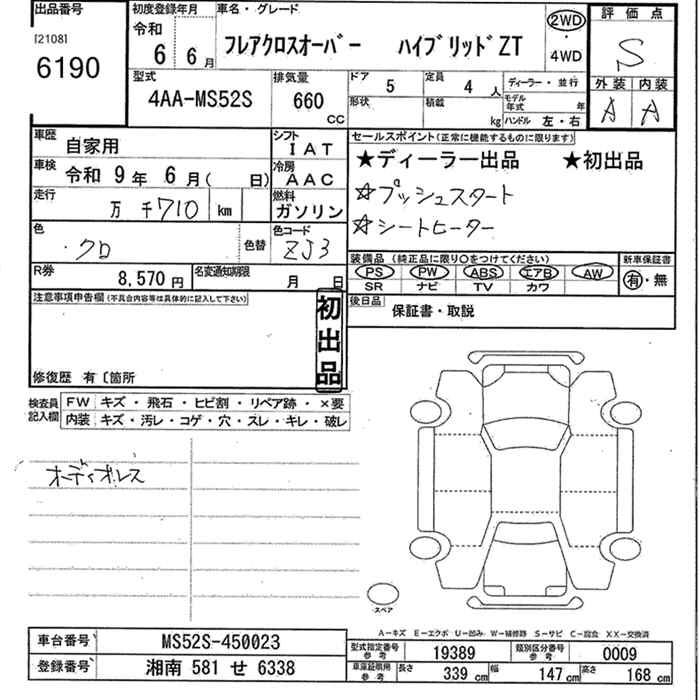 出品番号 初度登録年月 車名・グレード 評価点
[2108] 令和
6190 6 6月 フレアクロスオーバー ハイブリッドZT 2WD・4WD S
型式 排気量 ドア 定員 ディーラー・並行 外装 内装
4AA-MS52S 660 CC 5 4 人 A A
形状 積載 kg モデル年式 年 ハンドル 左・右
車歴 自家用 シフト IAT セールスポイント(正常に機能するものに限ります)
車検 令和 9年 6月( 日) 冷房 AAC ★ディーラー出品 ★初出品
走行 万 千710 km 燃料 ガソリン ☆プッシュスタート
色 クロ 色替 色コード ZJ3 ☆シートヒーター
装備品(純正品に限り○をつけてください) 新車保証書
R券 8,570円 名変通知期限 月 日 PS PW ABS エアB AW 有・無
SR ナビ TV カワ
注意事項申告欄(不具合内容等は具体的に記入して下さい) 初出品 後日品 保証書・取説
修復歴 有〔箇所
検査員記入欄 FW キズ・飛石・ヒビ割・リペア跡・×要
内装 キズ・汚レ・コゲ・穴・スレ・キレ・破レ
オーディオレス
スペア
A-キズ E-エクボ U-凹み W-補修跡 S-サビ C-腐食 XX-交換済
車台番号 MS52S-450023 型式指定番号参考 19389 類別区分番号参考 0009
登録番号 湘南 581 せ 6338 車庫証明用参考 長さ 339 cm 幅 147 cm 高さ 168 cm